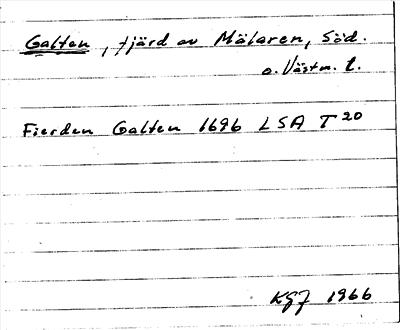 Galten, fjärd av Mälaren, Söd.
o. Västm. l.
Fierden Galten 1696 LSA T 20
KGJ 1966